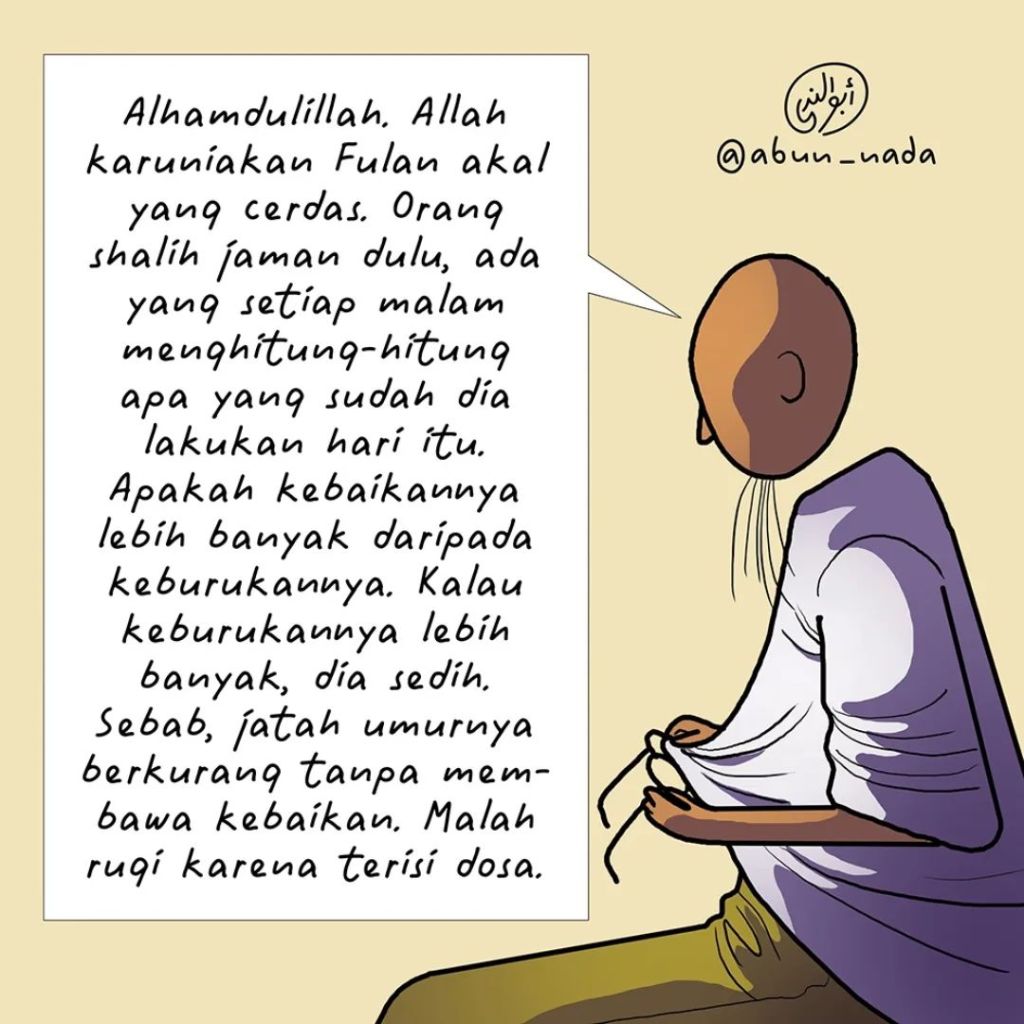 Alhamdulillah. Allah
karuniakan Fulan akal
yang cerdas. Orang
shalih jaman dulu, ada
yang setiap malam
menghitung-hitung
apa yang sudah dia
lakukan hari itu.
Apakah kebaikannya
lebih banyak daripada
keburukannya. Kalau
keburukannya lebih
banyak, dia sedih.
Sebab, jatah umurnya
berkurang tanpa mem-
bawa kebaikan. Malah
rugi karena terisi dosa.
أبو الندى
@abun_nada